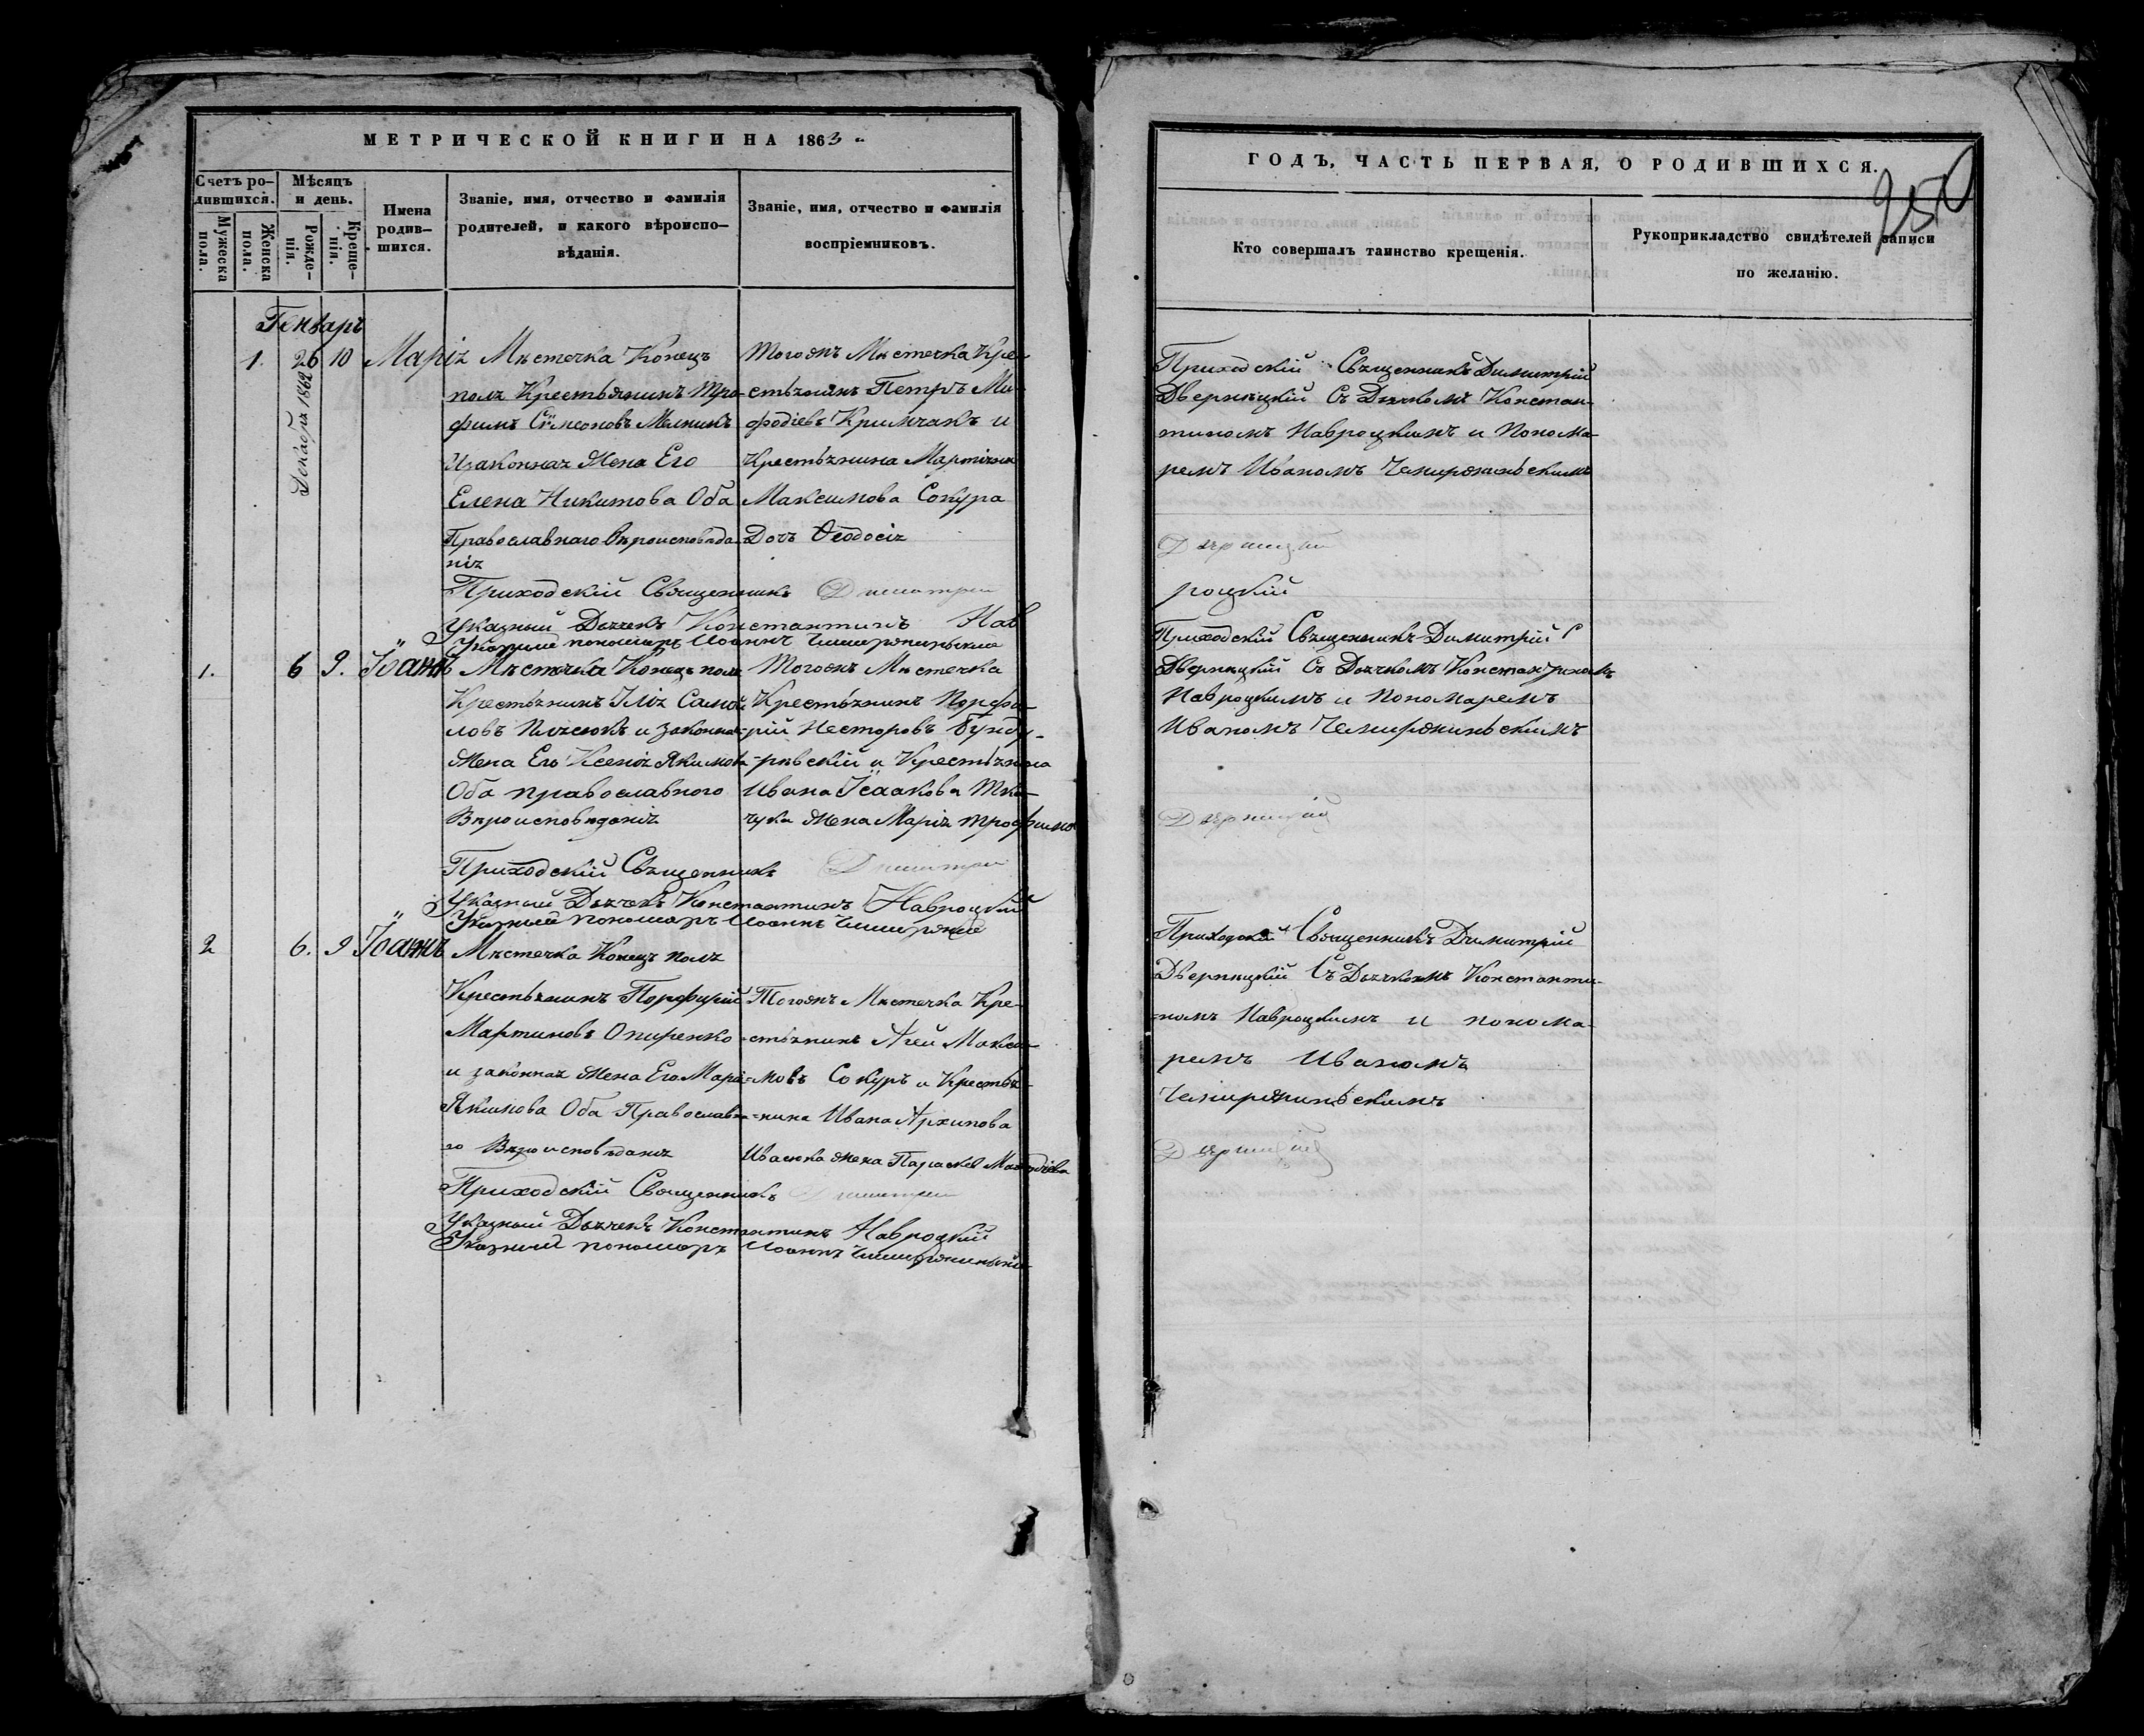 МЕТРИЧЕСКОЙ КНИГИ НА 1863
Счетъ ро-
дившихся.
Мужеска
пола.
Женска
пола.
Мѣсяцъ
и день.
Рожде-
нія.
Креще-
нія.
Имена
родив-
шихся.
Званіе, имя, отчество и фамилія
родителей, и какого вѣроиспо-
вѣданія.
Званіе, имя, отчество и фамилія
воспріемниковъ.
Генваръ
1. 26 10 Марія
Декабря 1862
Мѣстечка Конецъ
поля Крестьянинъ Тро-
фимъ Симеоновъ Мельникъ
и законная Жена Его
Елена Никитова Оба
Православнаго Вѣроисповѣда-
нія
Тогожъ Мѣстечка Кре-
стьянинъ Петръ Ме-
фодіевъ Кримчакъ и
Крестьянина Мартина
Максимова Сокура
Дочь Ѳеодосія
Приходскій Священникъ Димитрій
Указный Дьячекъ Константинъ Нав
Указный пономаръ Иоаннъ
1. 6 9. Іоаннъ
Мѣстечка Конецъ поля
Крестьянинъ Илія Самои-
ловъ и законная
Жена Его Ксенія Якимова
Оба православного
Вѣроисповѣданія
Тогожъ Мѣстечка
Крестьянинъ Порфи-
рій Несторовъ Бунду-
ровскій и Крестьянина
Ивана Ісаакова Тка-
чука Жена Марія Трофимова
Приходскій Священникъ Димитрій
Указный Дьячекъ Константинъ Навроцкій
Указный пономаръ Иоаннъ
2 6. 9 Іоаннъ
Мѣстечка Конецъ поля
Крестьянинъ Порфирій
Мартиновъ Опиренко
и законная Жена Его Марія
Якимова Оба Православна-
го Вѣроисповѣданія
Тогожъ Мѣстечка Кре-
стьянинъ Агей Макси-
мовъ Сокуръ и Крестья-
нина Ивана Архипова
Ивасюка Жена
Приходскій Священникъ Димитрій
Указный Дьячекъ Константинъ Навроцкій
Указный пономаръ Иоаннъ
ГОДЪ, ЧАСТЬ ПЕРВАЯ, О РОДИВШИХСЯ.
Кто совершалъ таинство крещенія.
Рукоприкладство свидѣтелей записи
по желанію.
Приходскій Священникъ Димитрій
Дверницкій Съ Дьячкомъ Констан-
тиномъ Навроцкимъ и Понома-
ремъ Иваномъ Чемиржинскимъ
роцкій
Приходскій Священникъ Димитрій
Дверницкій Съ Дьячкомъ Константиномъ
Навроцкимъ и Пономаремъ
Иваномъ Чемиржинскимъ
Приходскій Священникъ Димитрій
Дверницкій Съ Дьячкомъ Константи-
номъ Навроцкимъ и понома-
ремъ Иваномъ
Чемиржинскимъ